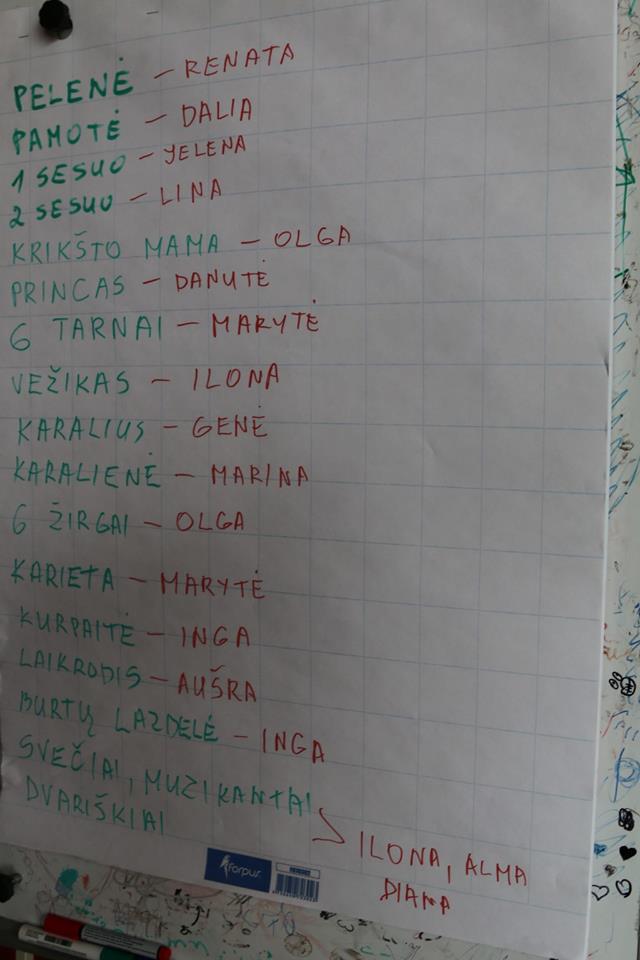 PELENĖ – RENATA
PAMOTĖ – DALIA
1 SESUO – JELENA
2 SESUO – LINA
KRIKŠTO MAMA – OLGA
PRINCAS – DANUTĖ
6 TARNAI – MARYTĖ
VEŽIKAS – ILONA
KARALIUS – GENĖ
KARALIENĖ – MARINA
6 ŽIRGAI – OLGA
KARIETA – MARYTĖ
KURPAITĖ – INGA
LAIKRODIS – AUŠRA
BURTŲ LAZDELĖ – INGA
SVEČIAI, MUZIKANTAI
DVARIŠKIAI
ILONA, ALMA
DIANA
forpus